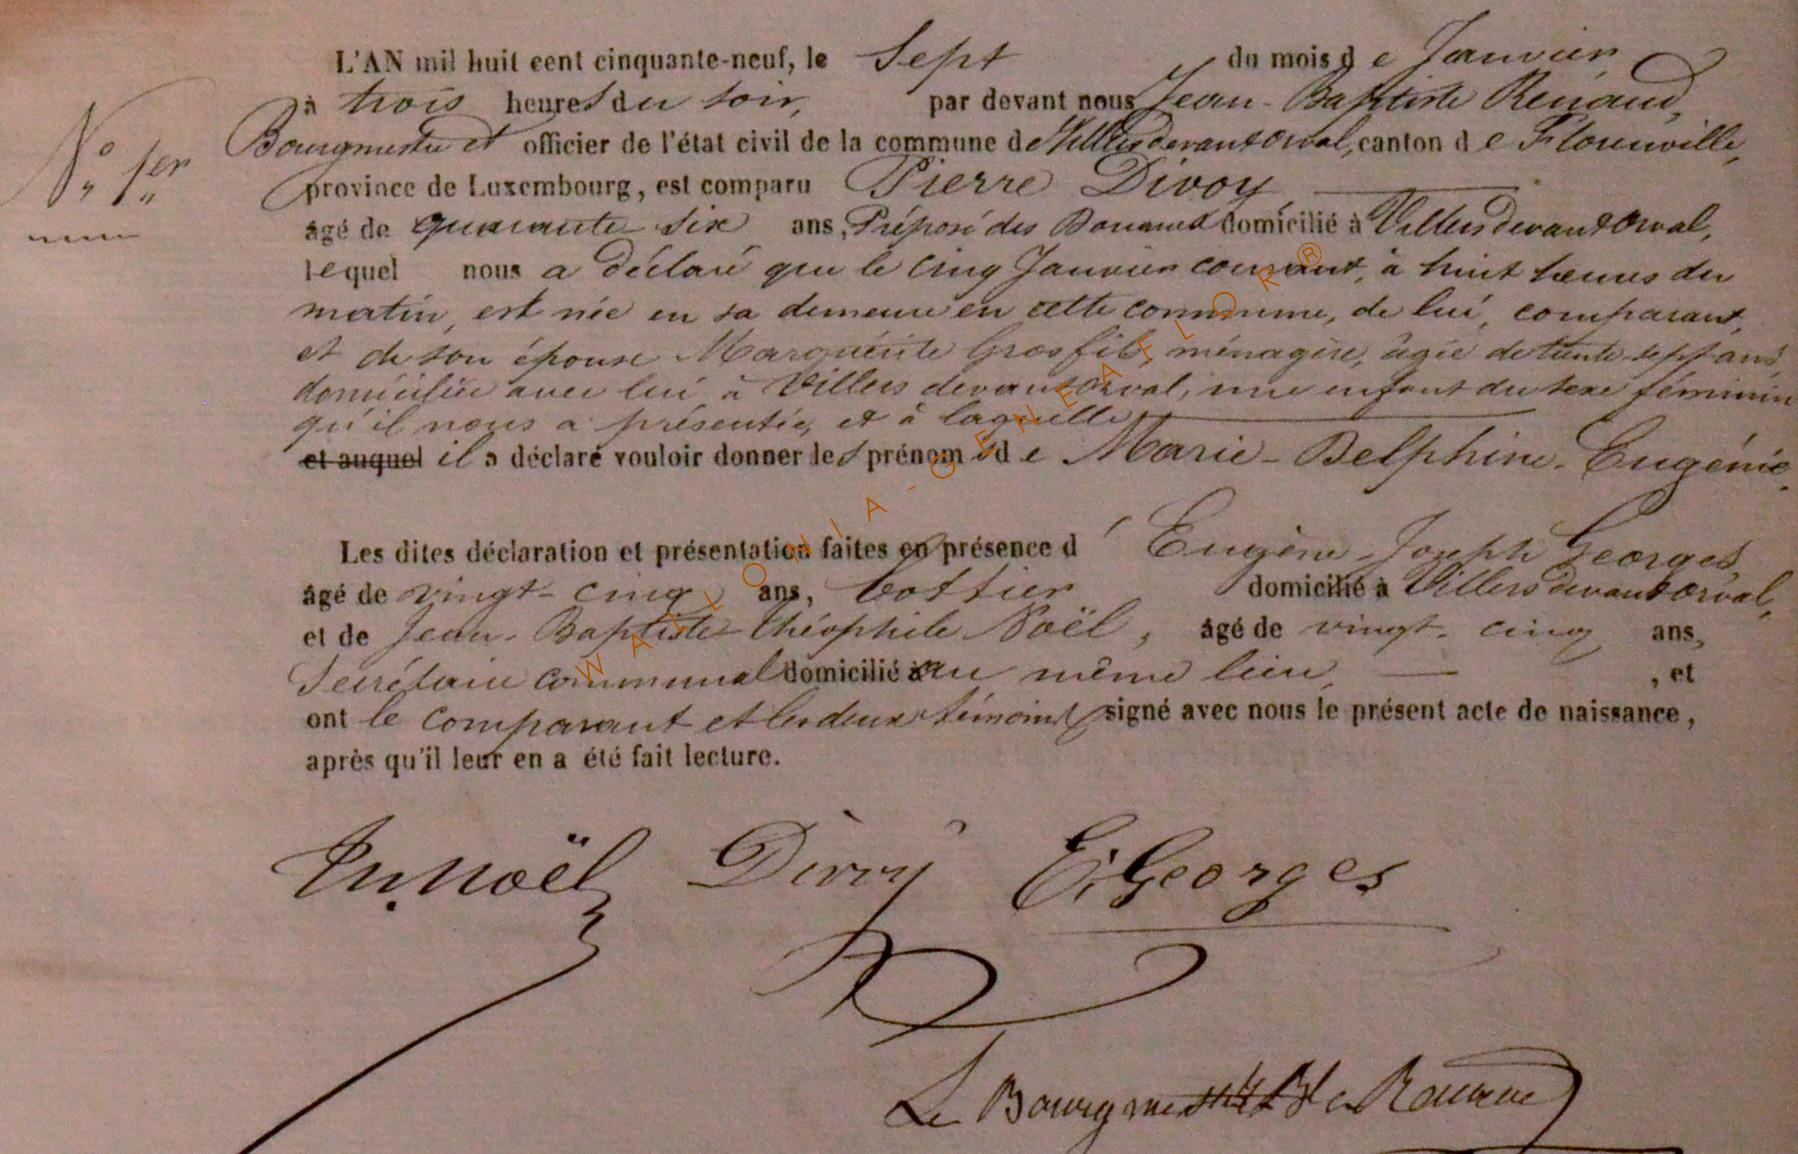 L'AN mil huit cent cinquante-neuf, le Sept du mois de Janvier
à trois heures du soir, par devant nous Jean-Baptiste Renaud,
N° 1er
Bourgmestre et officier de l'état civil de la commune de Villersdevantorval, canton de Florenville,
province de Luxembourg, est comparu Pierre Divoy
âgé de quarante six ans, Préposé des Douanes domicilié à Villersdevantorval,
lequel nous a déclaré que le cinq Janvier courant, à huit heures du
matin, est née en sa demeure en cette commune, de lui, comparant,
et de son épouse Marguerite Grosfils, ménagère, âgée de trente-sept ans,
domiciliée avec lui à Villers devant Orval, une enfant du sexe féminin
qu'il nous a présentée, et à laquelle
et auquel il a déclaré vouloir donner les prénoms de Marie-Delphine-Eugénie.
Les dites déclaration et présentation faites en présence d'Eugène-Joseph Georges
âgé de vingt-cinq ans, bottier domicilié à Villersdevantorval,
et de Jean-Baptiste-Théophile Noël, âgé de vingt-cinq ans,
Secrétaire communal domicilié au même lieu, , et
ont le comparant et les deux témoins signé avec nous le présent acte de naissance,
après qu'il leur en a été fait lecture.
Noël Divoy E. Georges
Le Bourgmestre Renaud
WALLONIA-GENEAFLOR®